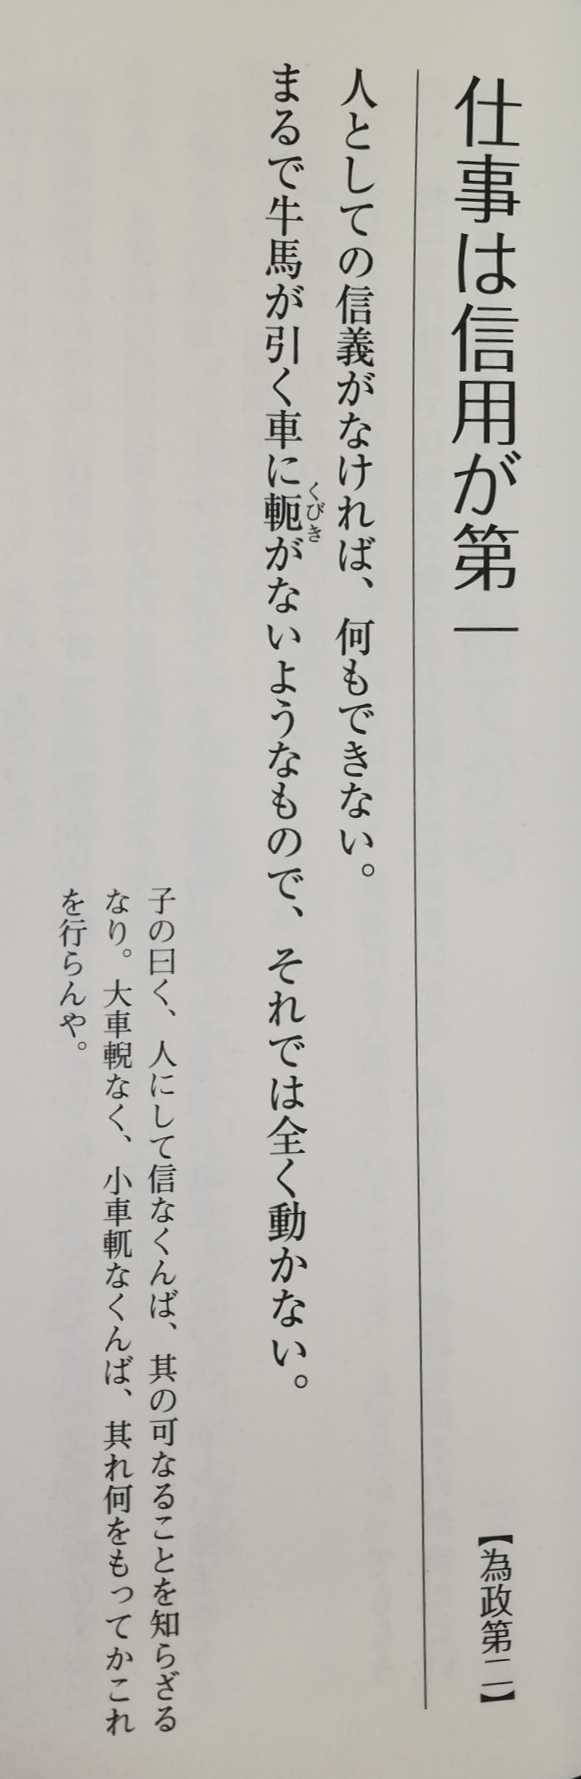 仕事は信用が第一
【為政第二】
人としての信義がなければ、何もできない。
まるで牛馬が引く車に軛がないようなもので、それでは全く動かない。
くびき
子の曰く、人にして信なくんば、其の可なることを知らざる
なり。大車輗なく、小車軏なくんば、其れ何をもってかこれ
を行らんや。